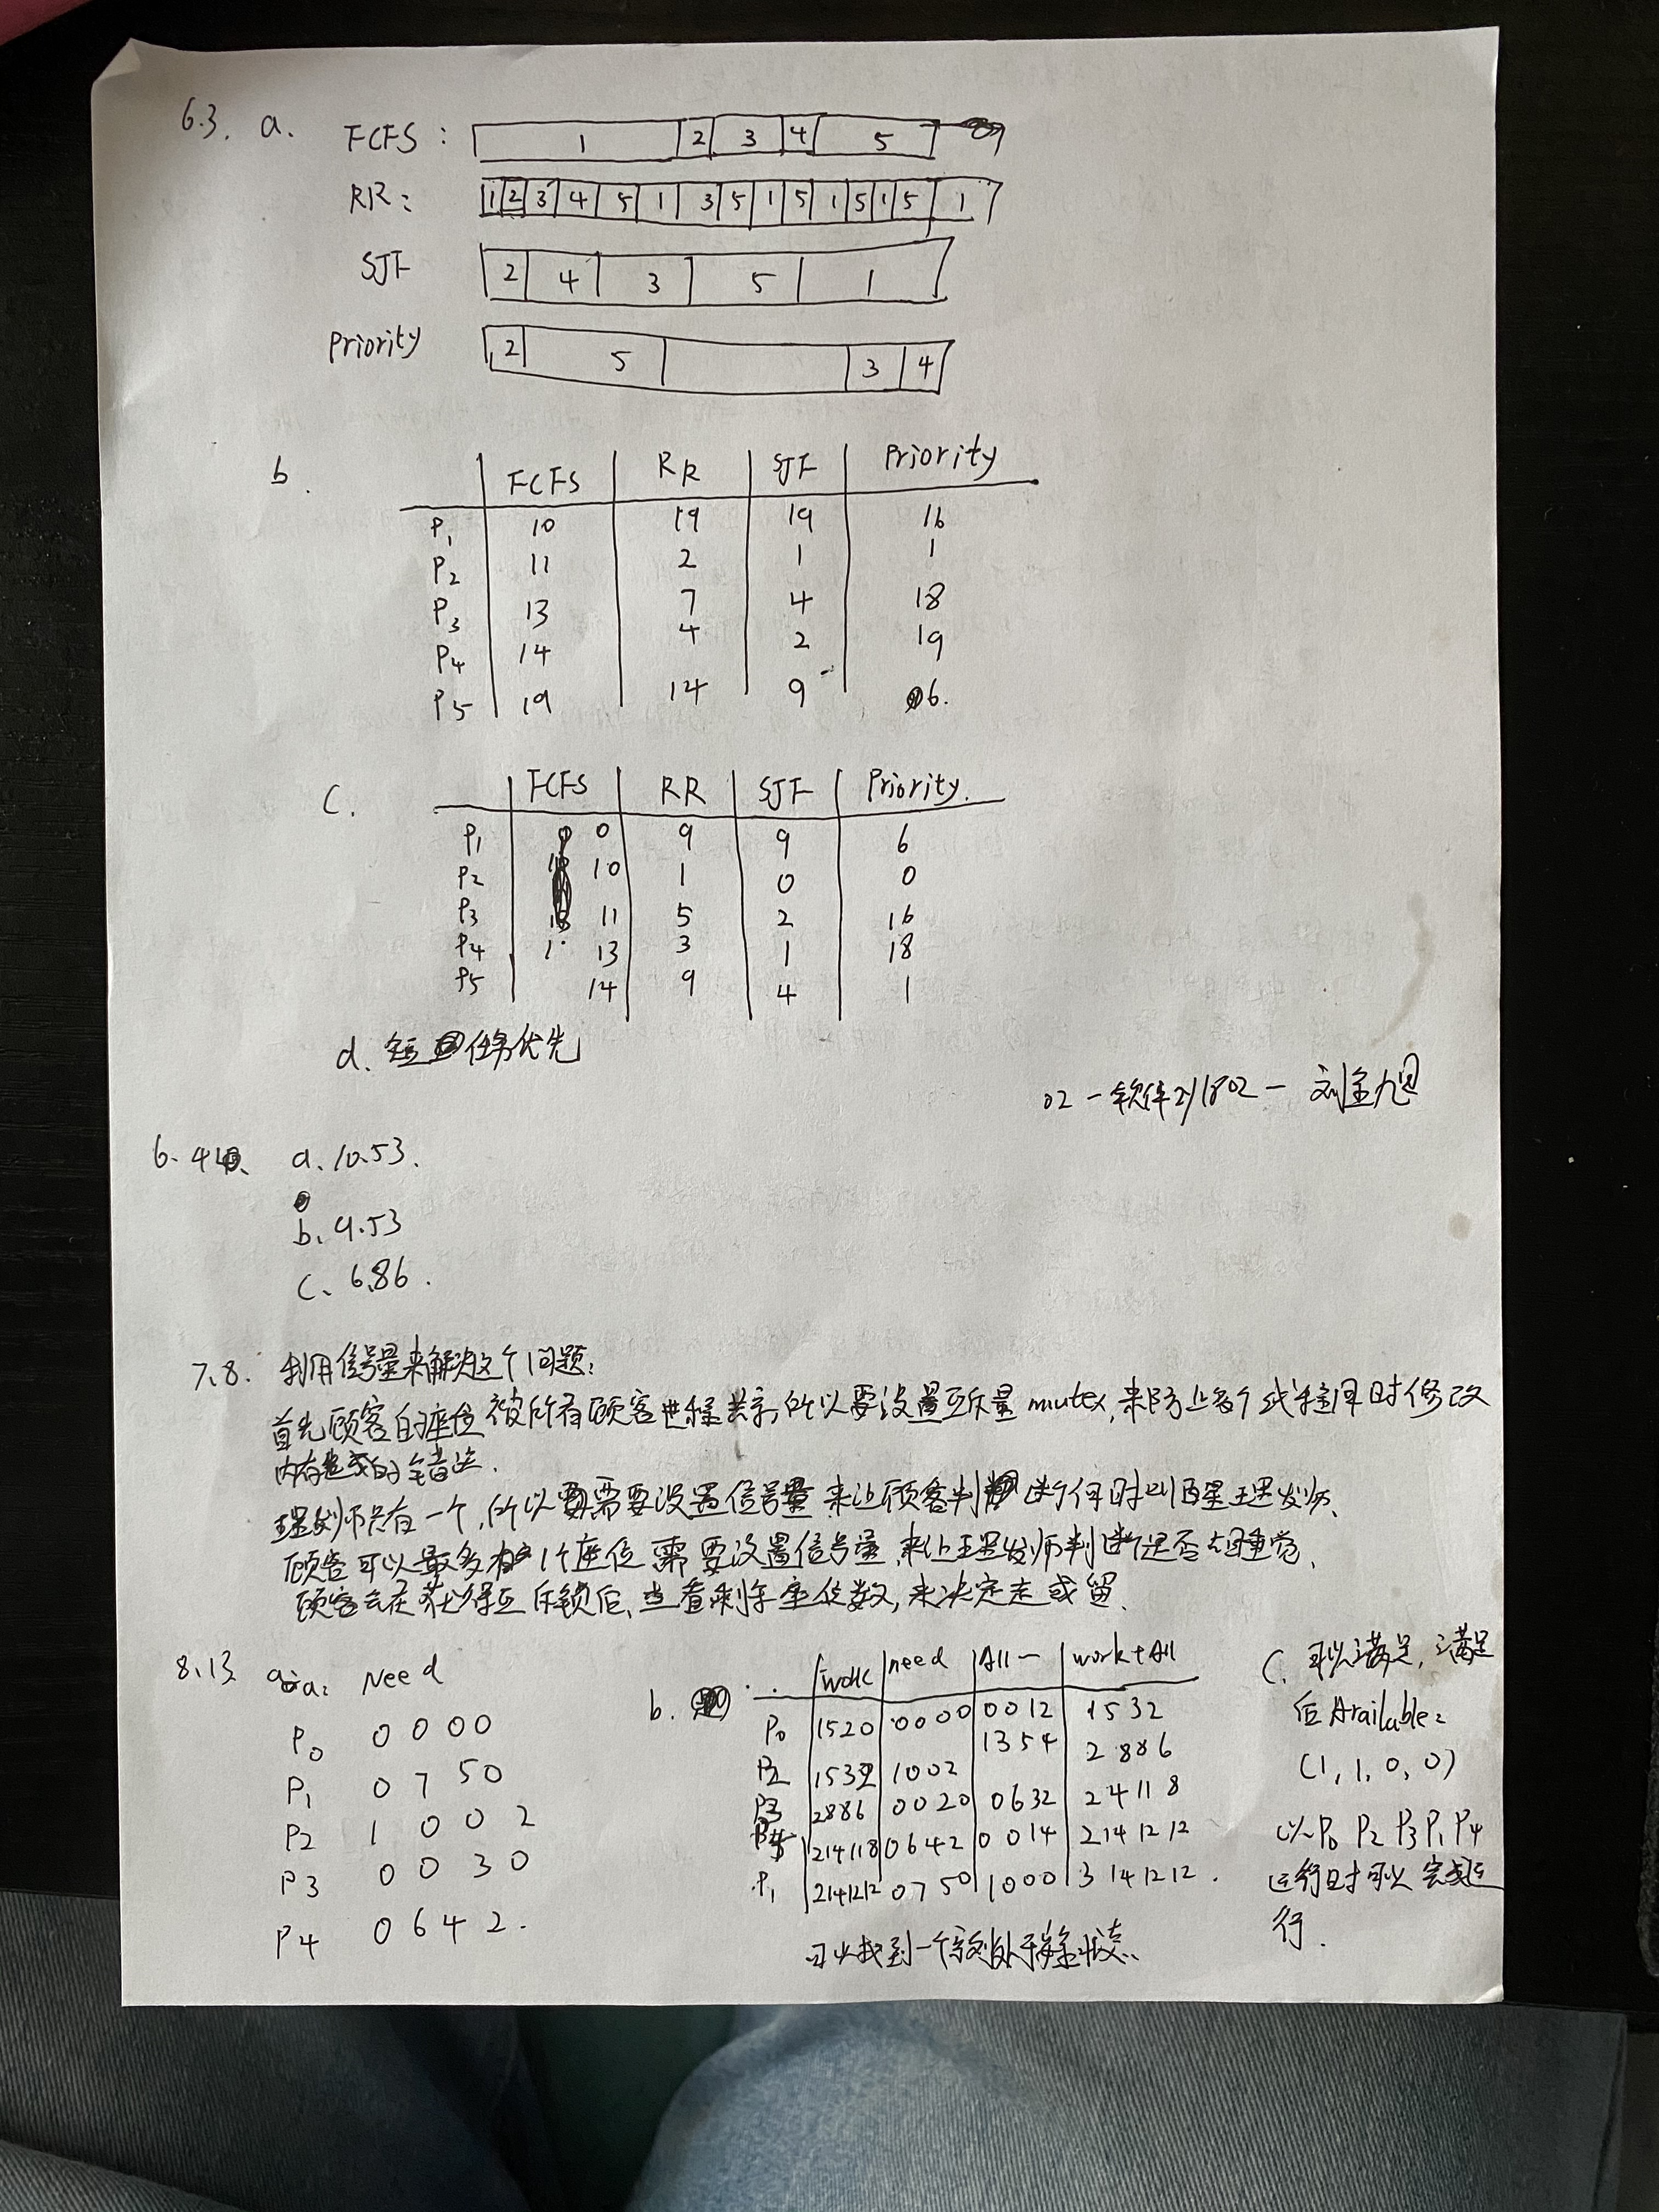 6.3. a. FCFS: 1 2 3 4 5
RR: 1 2 3 4 5 1 3 5 1 5 1 5 1 5 1
SJF 2 4 3 5 1
Priority 2 5 3 4
b. FCFS RR SJF Priority
P1 10 19 19 16
P2 11 2 1 1
P3 13 7 4 18
P4 14 4 2 19
P5 19 14 9 6.
C. FCFS RR SJF Priority.
P1 0 9 9 6
P2 10 1 0 0
P3 11 5 2 16
P4 13 3 1 18
P5 14 9 4 1
d. 短任务优先
02-软件1802-刘金旭
6.4 a. 10.53.
b. 9.53
C. 6.86.
7.8. 利用信号量来解决这个问题:
首先顾客的座位被所有顾客进程共享,所以要设置互斥量mutex,来防止多个线程同时修改
内存造成的错误.
理发师只有一个,所以需要设置信号量,来让顾客判断何时叫醒理发师.
顾客可以最多有n个座位,需要设置信号量,来让理发师判断是否去睡觉.
顾客会在获得互斥锁后,查看剩余座位数,来决定走或留.
8.13 a: Need
P0 0 0 0 0
P1 0 7 5 0
P2 1 0 0 2
P3 0 0 3 0
P4 0 6 4 2.
b. work need All work+All
P0 1520 0000 0012 1532
P2 1532 1002 1354 2886
P3 2886 0020 0632 2 4 11 8
P4 2 14 11 8 0642 0014 2 14 12 12
P1 2 14 12 12 0750 1000 3 14 12 12.
可以找到一个序列处于安全状态.
C. 可以满足,满足
后Available:
(1, 1, 0, 0)
以P0 P2 P3 P1 P4
运行时可以完成运
行.